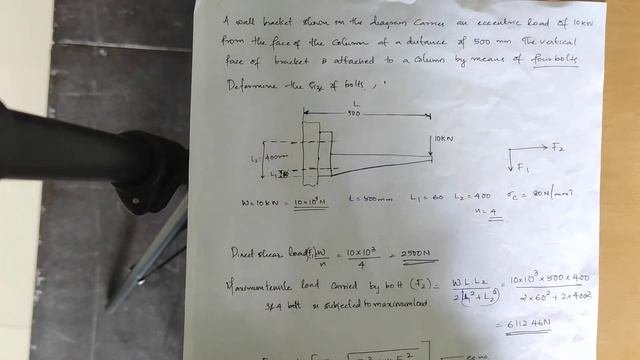 A wall bracket shown in the diagram carries an eccentric load of 10kN
from the face of the column at a distance of 500 mm The vertical
face of bracket is attached to a column by means of four bolts
Determine the size of bolts,
L
500
10KN
F2
F1
L2= 400mm
L1
W=10kN = 10×10³N L=500mm L1=60 L2=400 σc = 80N/mm²
n=4
Direct shear load(F1) W/n = 10×10³/4 = 2500N
Maximum tensile load carried by bolt (F2) = W.L.L2/2(L1²+L2²) = 10×10³×500×400/2×60²+2×400²
3&4 bolt is subjected to maximum load.
= 6112.46N